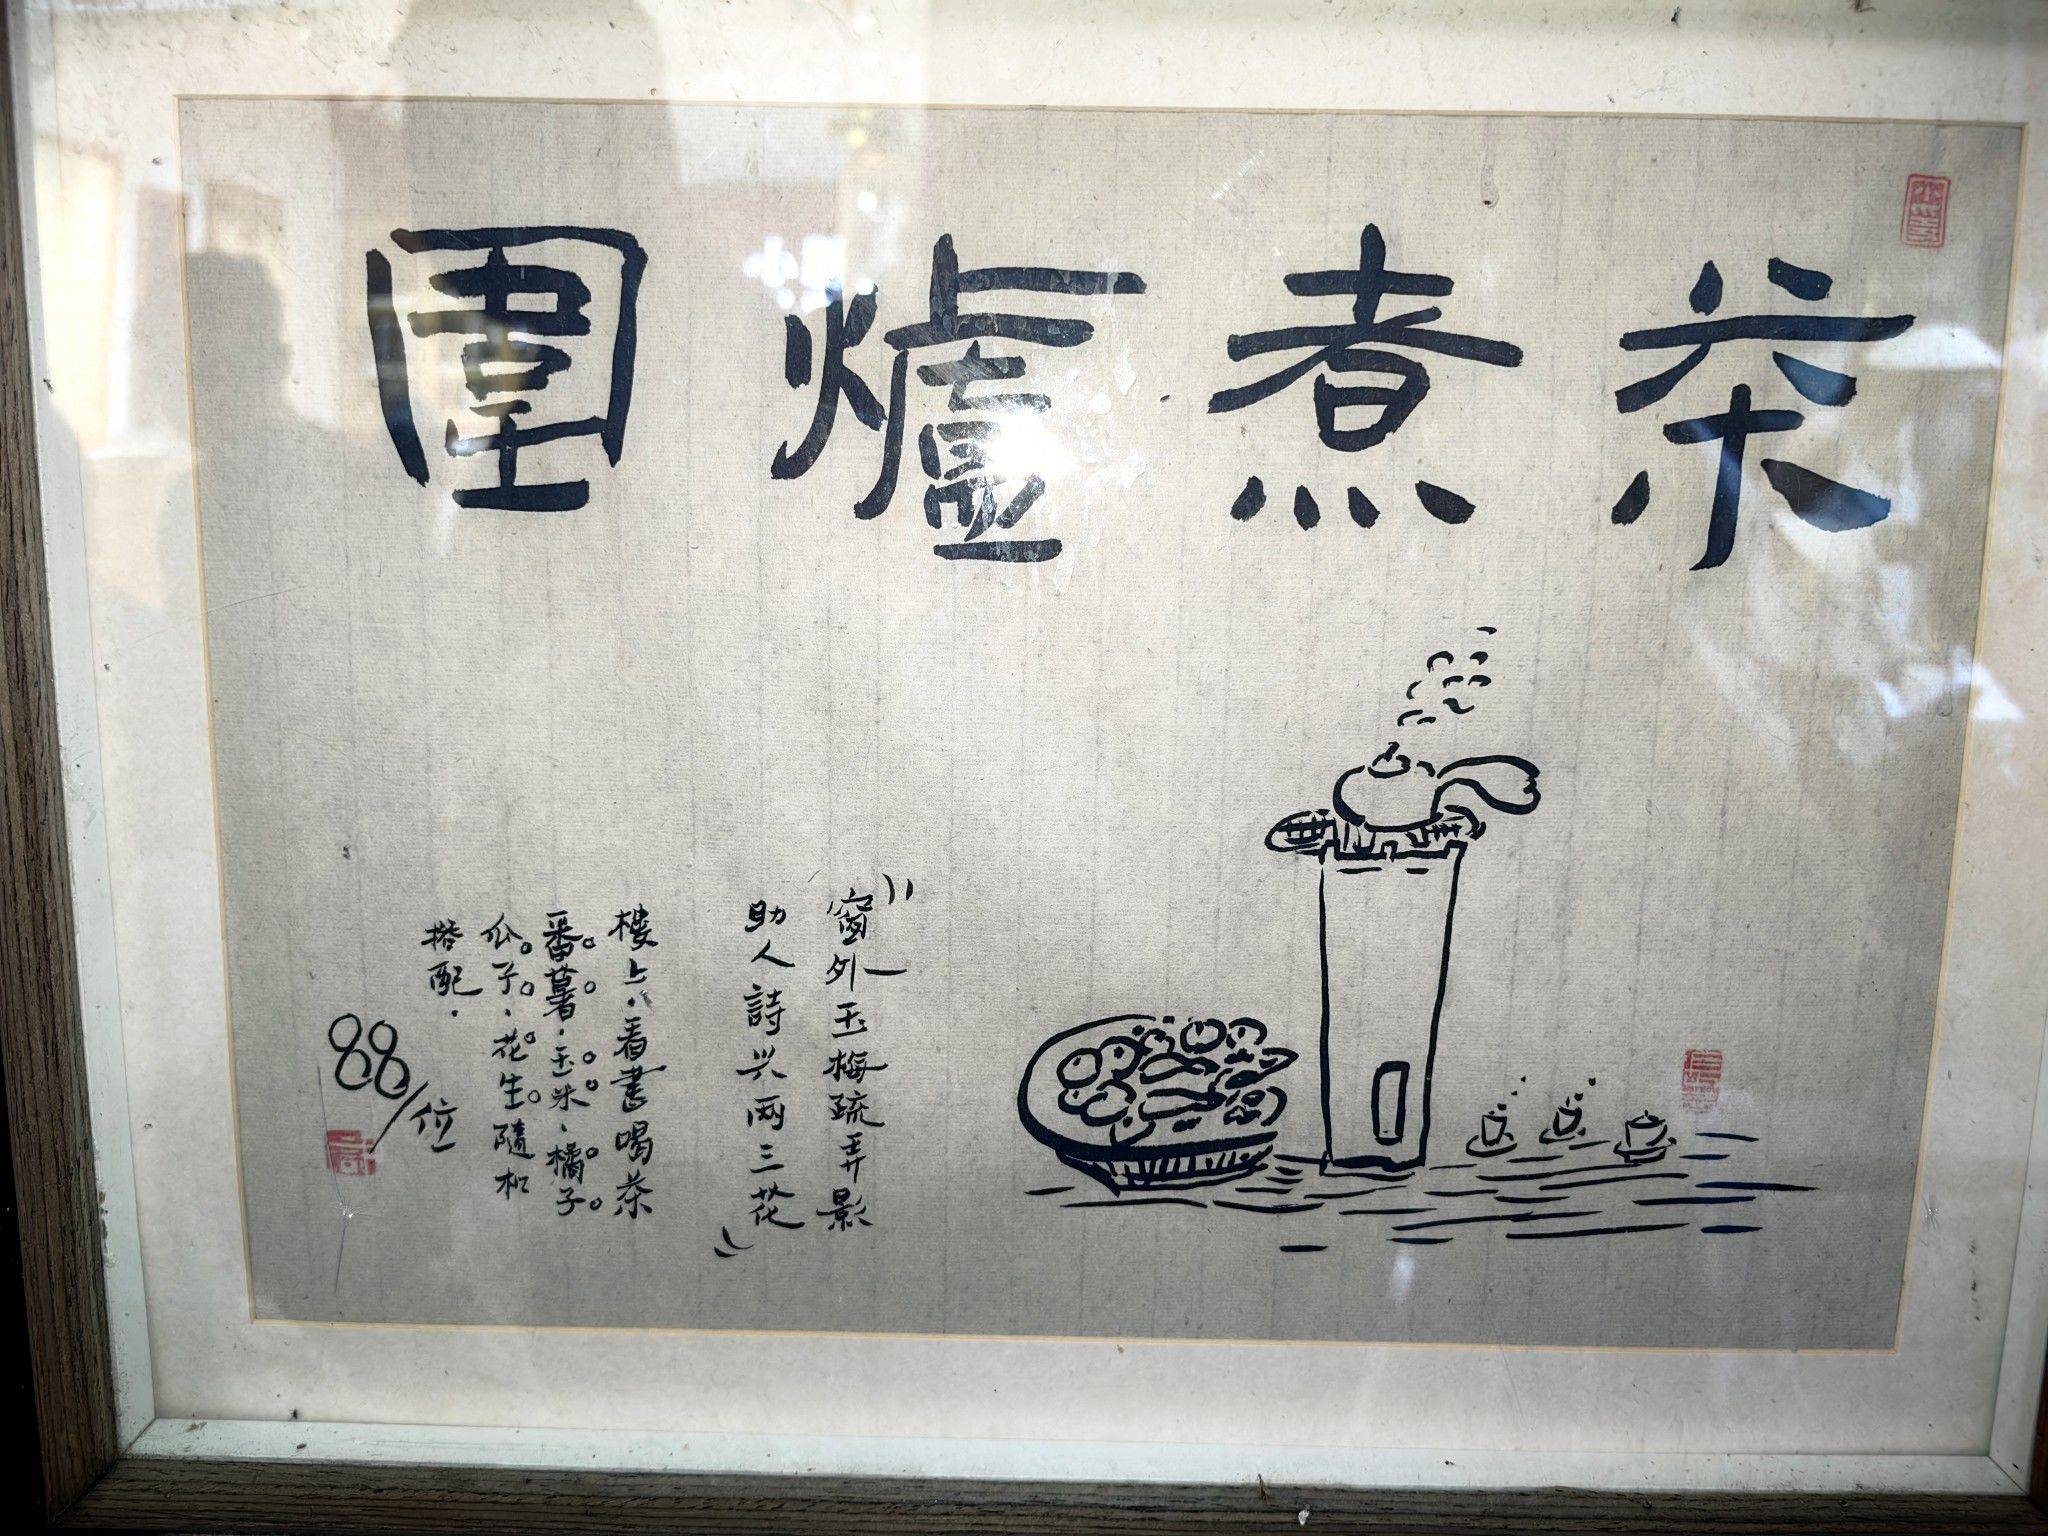 圍爐煮茶
窗外玉梅疏弄影
助人詩兴两三花
樓上·看書喝茶
番薯·玉米·橘子
瓜子·花生隨机
搭配·
88/位